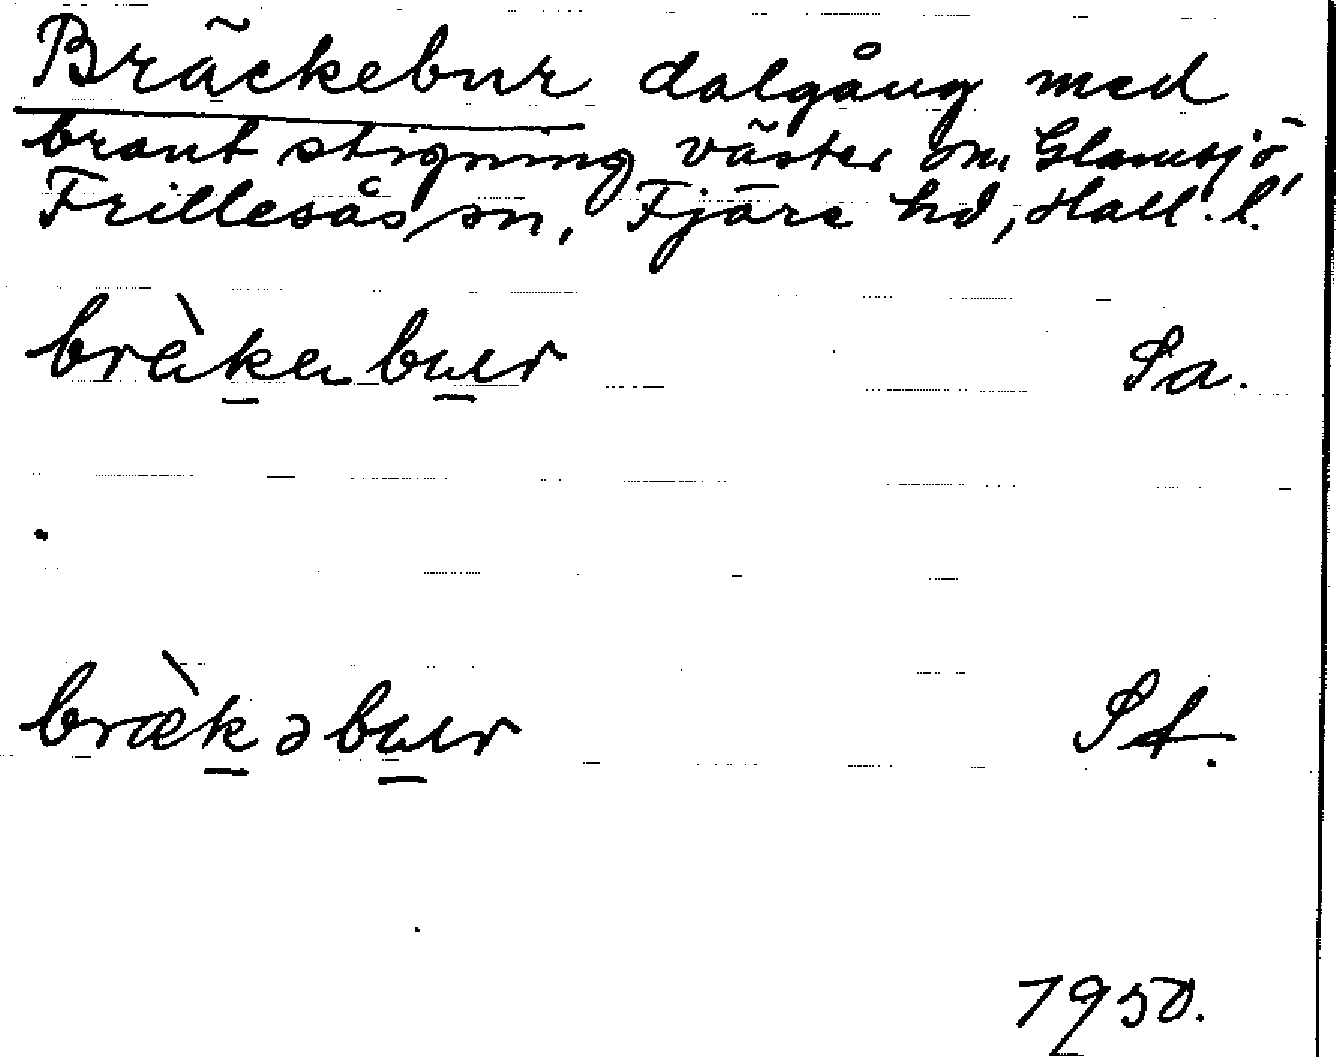 Bräckebur dalgång med
brant stigning väster om Glamsjö,
Frillesås sn, Fjäre hd, Hall. l.
bràkabur Sa.
bræ̀kəbur St.
1950.